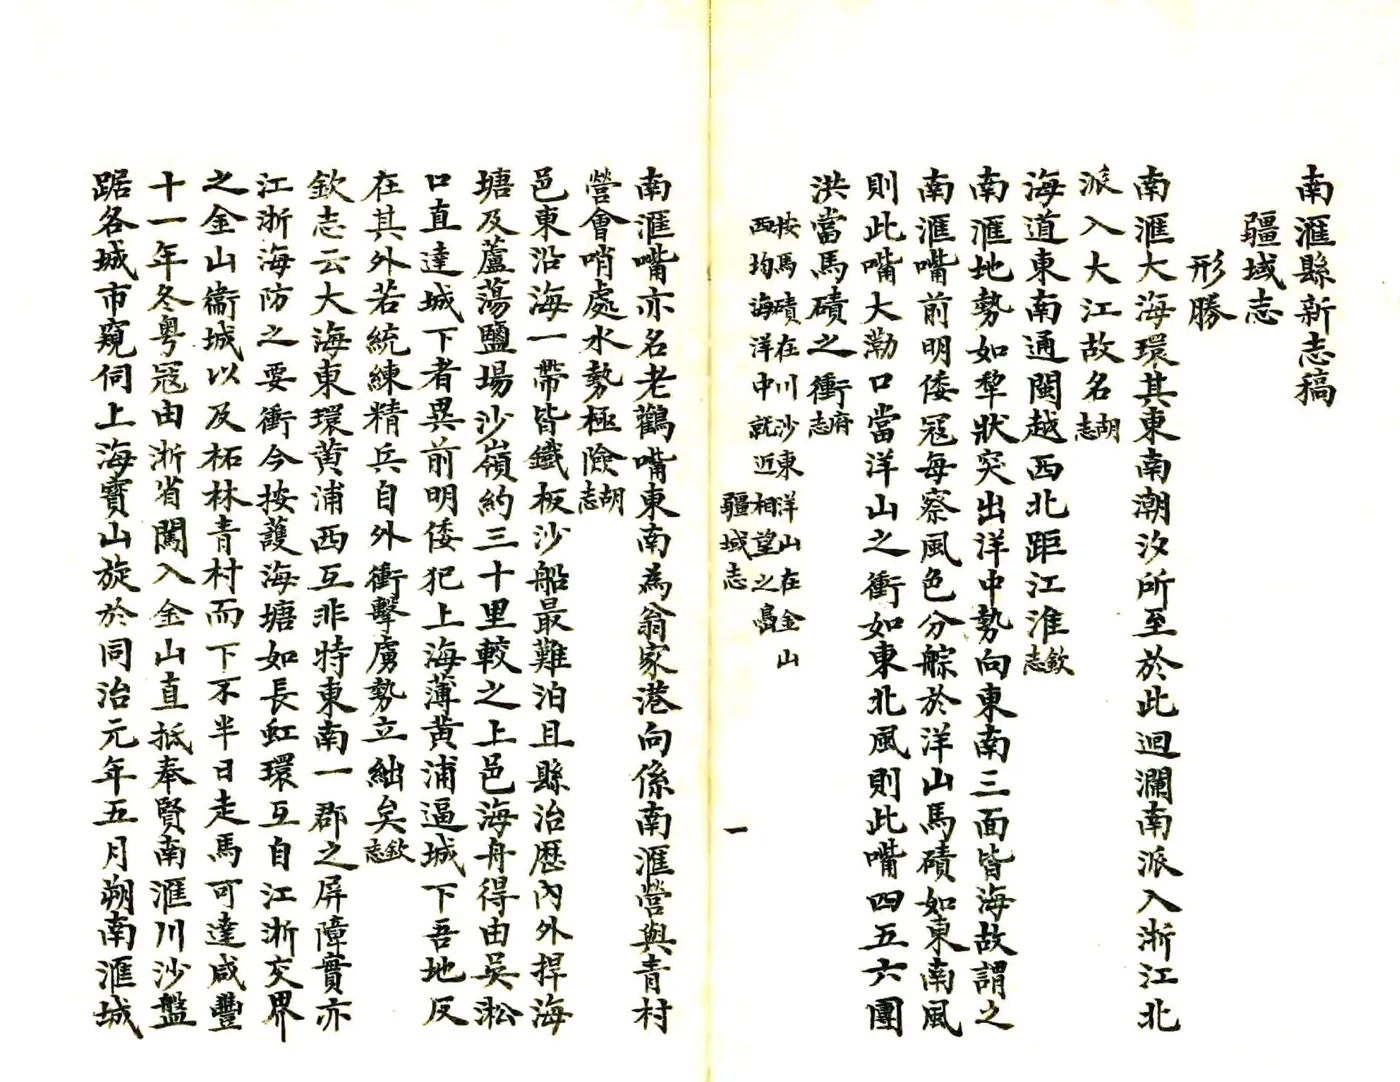 南滙縣新志稿
疆域志
形勝
南滙大海環其東南潮汐所至於此迴瀾南派入浙江北
派入大江故名胡志
海道東南通閩越西北距江淮欽志
南滙地勢如犂狀突出洋中勢向東南三面皆海故謂之
南滙嘴前明倭寇每察風色分䑸於洋山馬磧如東南風
則此嘴大泐口當洋山之衝如東北風則此嘴四五六團
洪當馬磧之衝府志
按馬磧在川沙東洋山在金山
西均海洋中就近相望之島
疆域志
一
南滙嘴亦名老鸛嘴東南為翁家港向係南滙營與青村
營會哨處水勢極險胡志
邑東沿海一帶皆鐵板沙船最難泊且縣治歷內外捍海
塘及蘆蕩鹽場沙嶺約三十里較之上邑海舟得由吳淞
口直達城下者異前明倭犯上海薄黃浦逼城下吾地反
在其外若統練精兵自外衝擊虜勢立絀矣欽志
欽志云大海東環黃浦西互非特東南一郡之屏障實亦
江浙海防之要衝今按護海塘如長虹環互自江浙交界
之金山衞城以及柘林青村而下不半日走馬可達咸豐
十一年冬粵寇由浙省闖入金山直抵奉賢南滙川沙盤
踞各城市窺伺上海寶山旋於同治元年五月朔南滙城